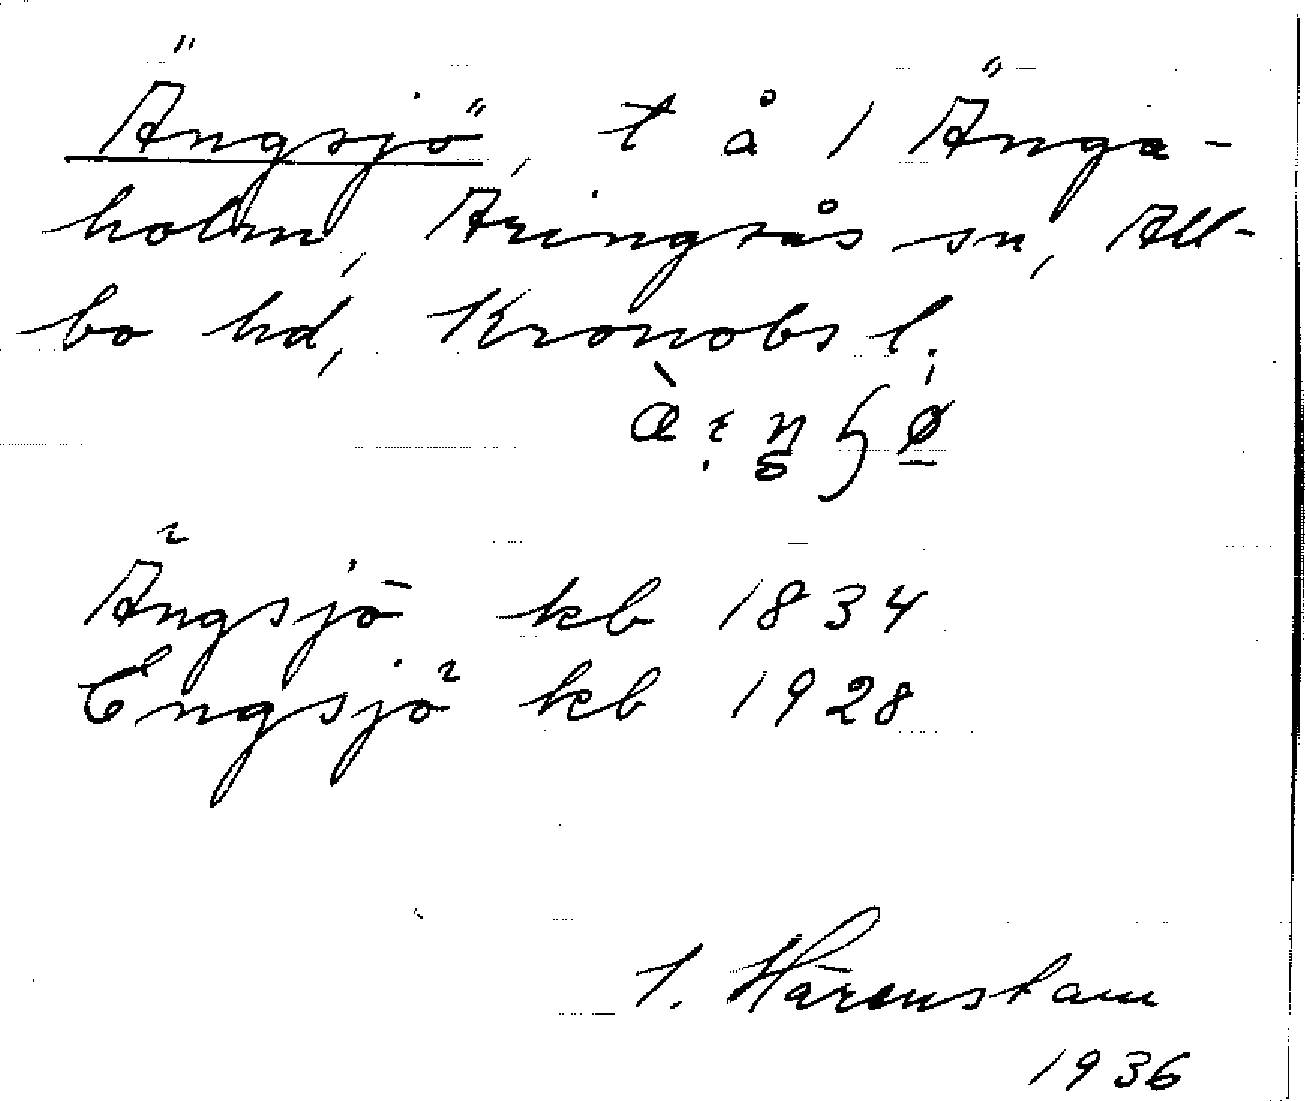 Ängsjö, t å 1 Änga-
holm, Aringsås sn, All-
bo hd, Kronobs l.
Ängsjö kb 1834
Engsjö kb 1928
1. Härenstam
1936